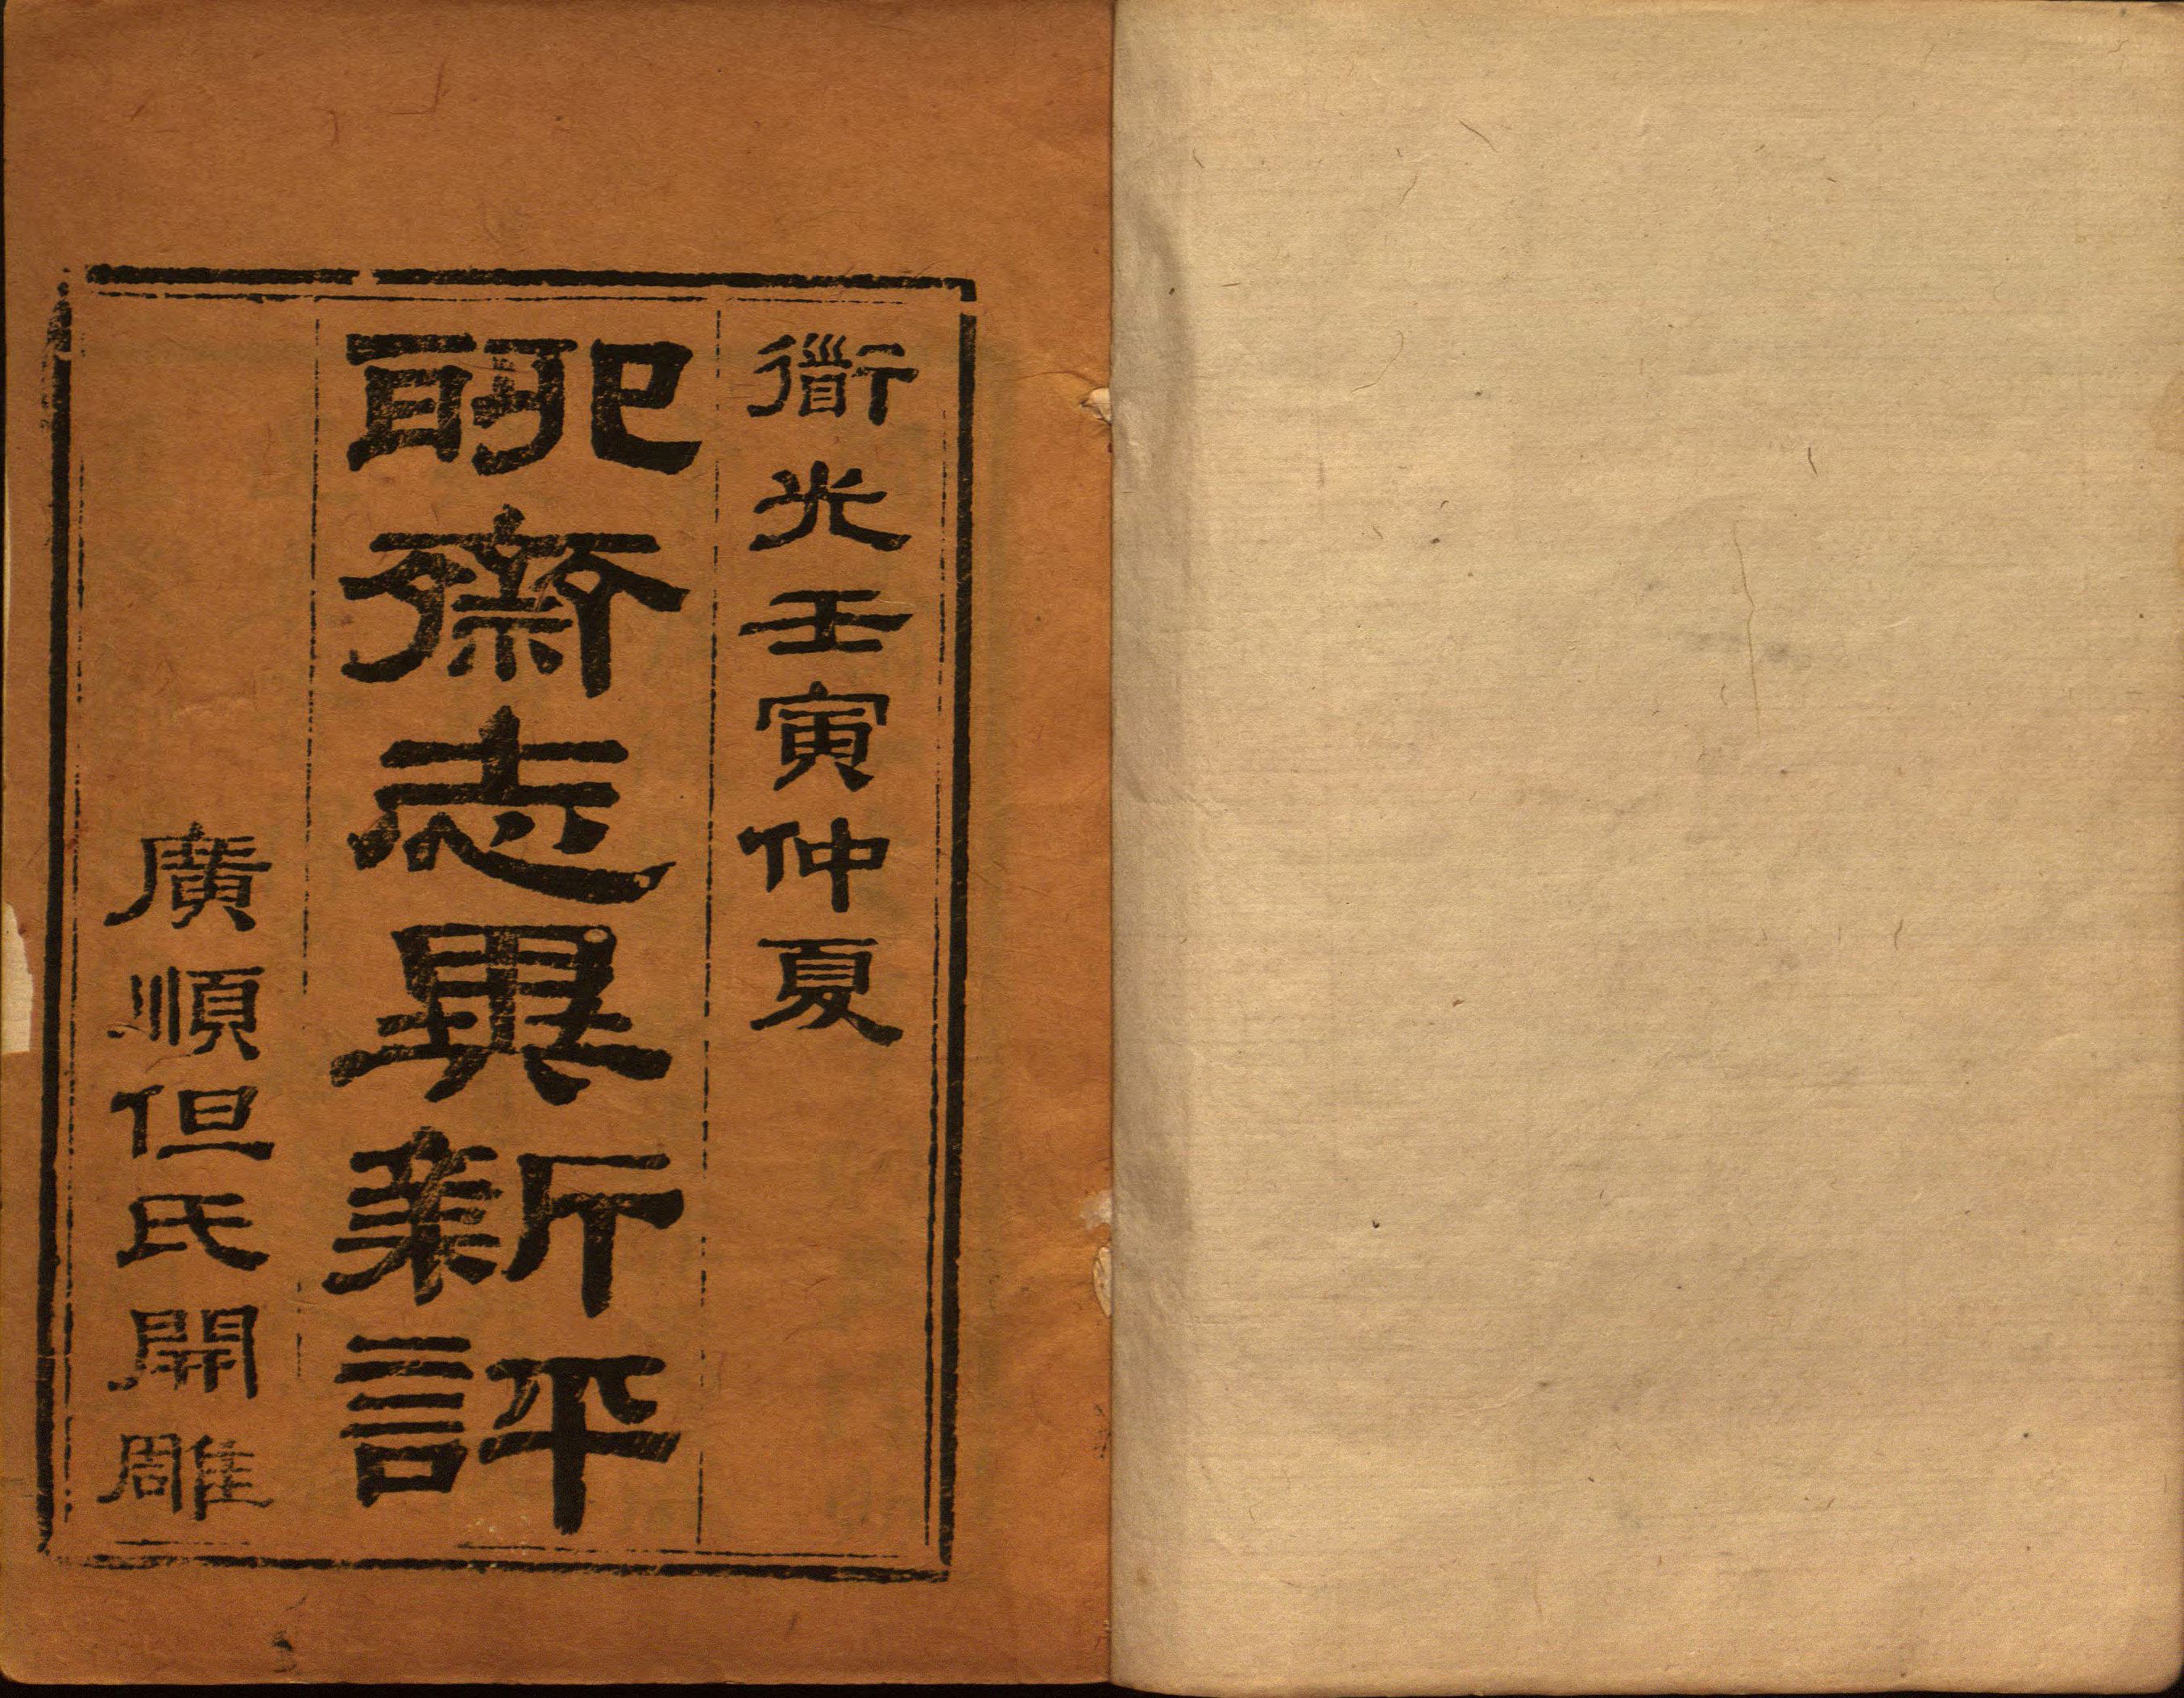 衜光壬寅仲夏
聊齋志異新評
廣順但氏開雕